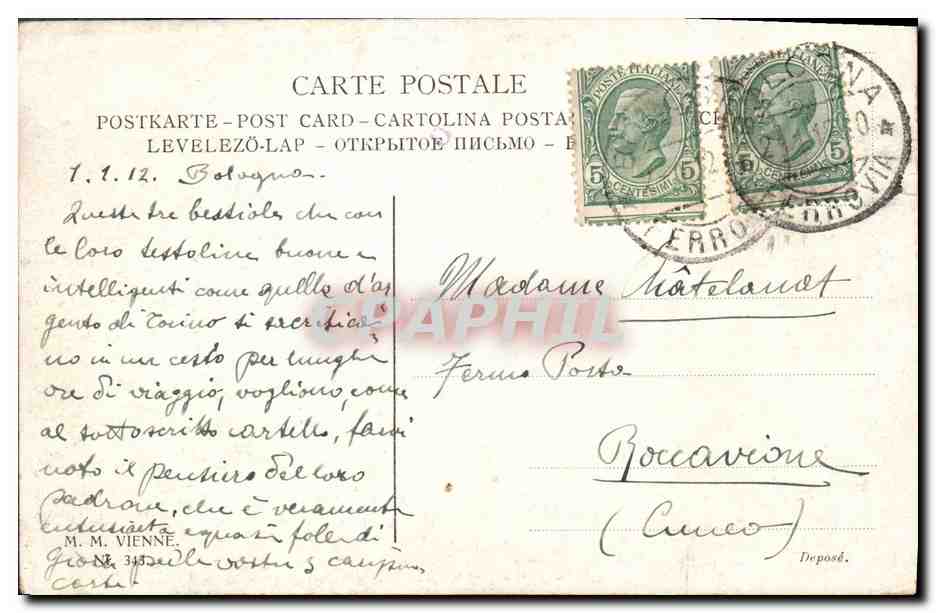 CARTE POSTALE
POSTKARTE – POST CARD – CARTOLINA POSTA
LEVELEZÖ-LAP – ОТКРЫТОЕ ПИСЬМО –
POSTE ITALIANE
5 5
CENTESIMI
POSTE ITALIANE
5 5
CENTESIMI
FERROVIA
1.1.12. Bologna.
Queste tre bestiole che con
le loro testoline buone e
intelligenti come quelle d'ar
gento di Torino si sacrifica
no in un cesto per lunghe
ore di viaggio, vogliono, come
al sottoscritto cartello, farvi
noto il pensiero del loro
padrone, che è veramente
entusiasta e quasi folle di
gioia per le vostre 3
carte.
Madame
Fermo Posta
Roccavione
(Cuneo)
CPAPHIL
M. M. VIENNE.
Nr. 345
Deposé.